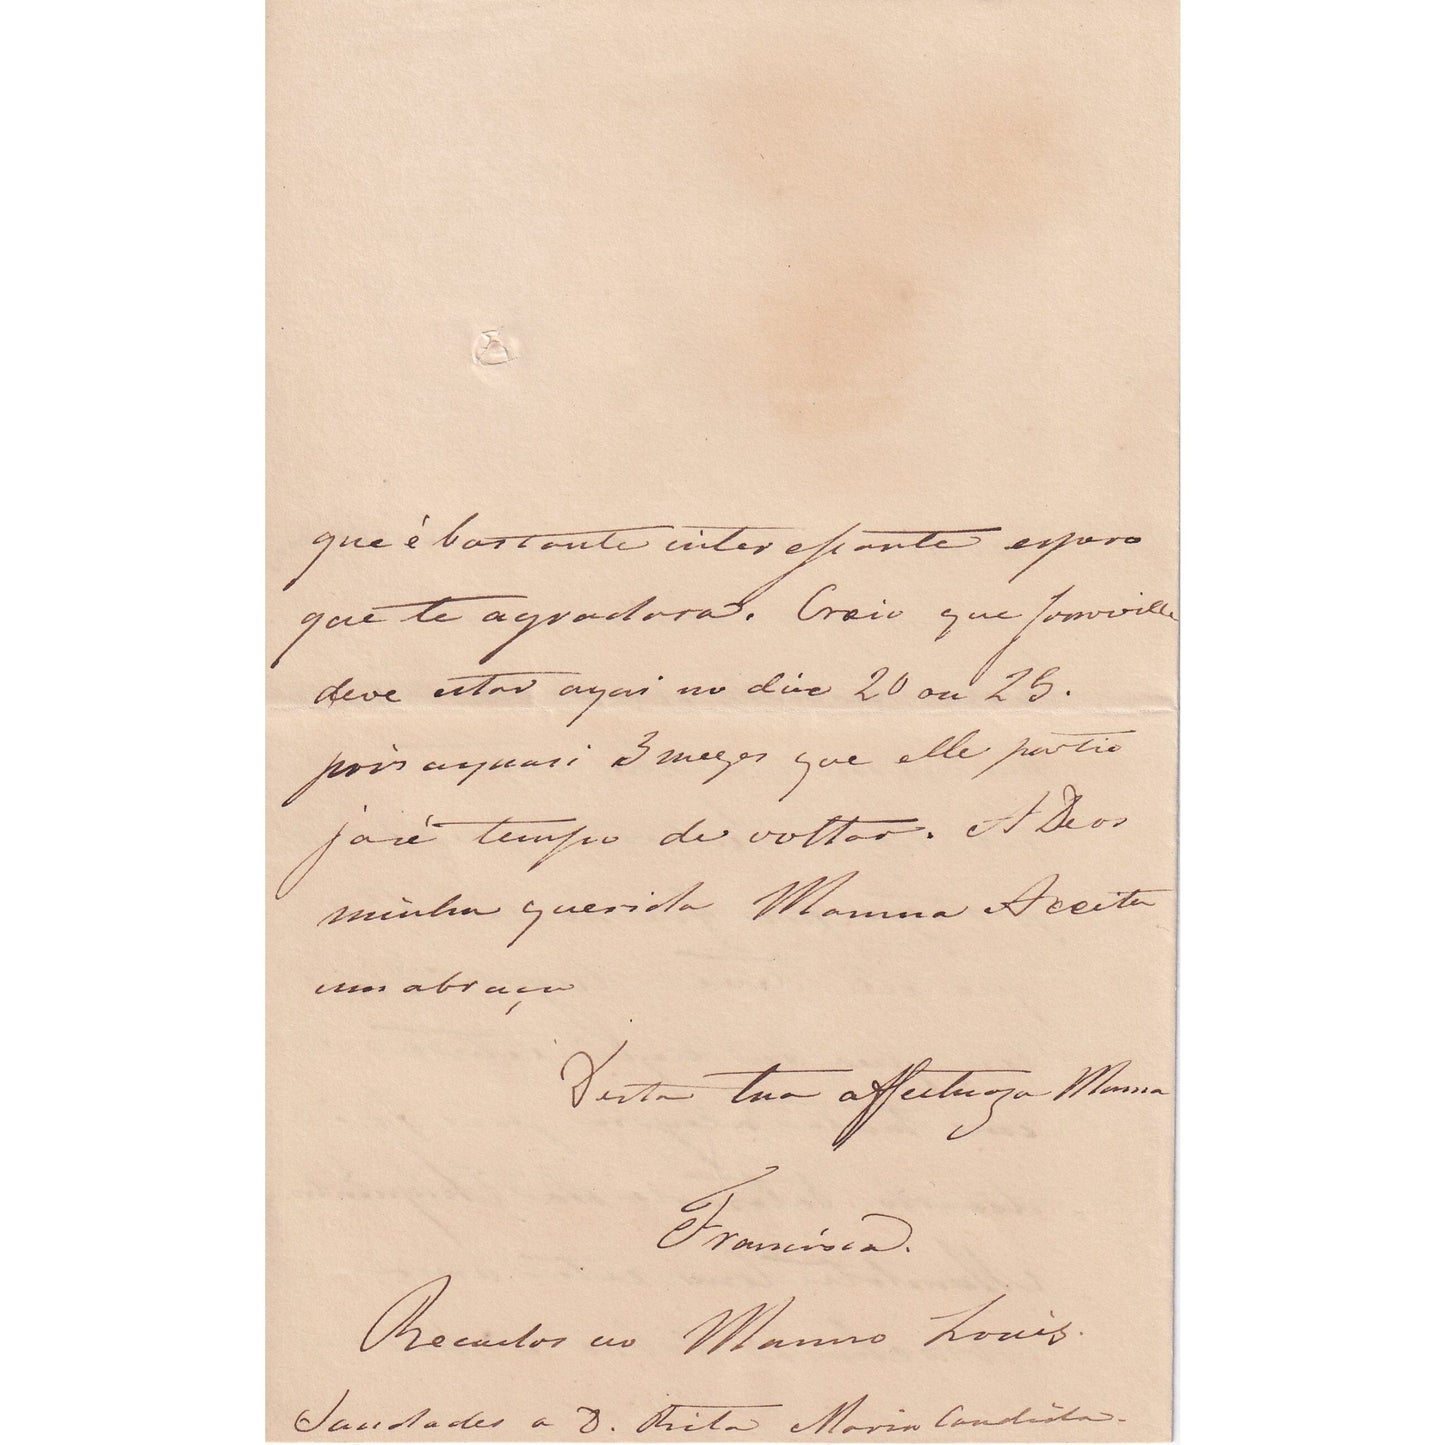 que é bastante interessante espero
que te agradara. Creio que Joinville
deve estar aqui no dia 20 ou 25.
pois aquasi 3 mezes que elle partio
ja é tempo de voltar. A Deos
minha querida Manna Acceita
um abraço
Desta tua affectuoza Manna
Francisca.
Recados ao Manno Louis.
Saudades a D. Rita Maria Candida.